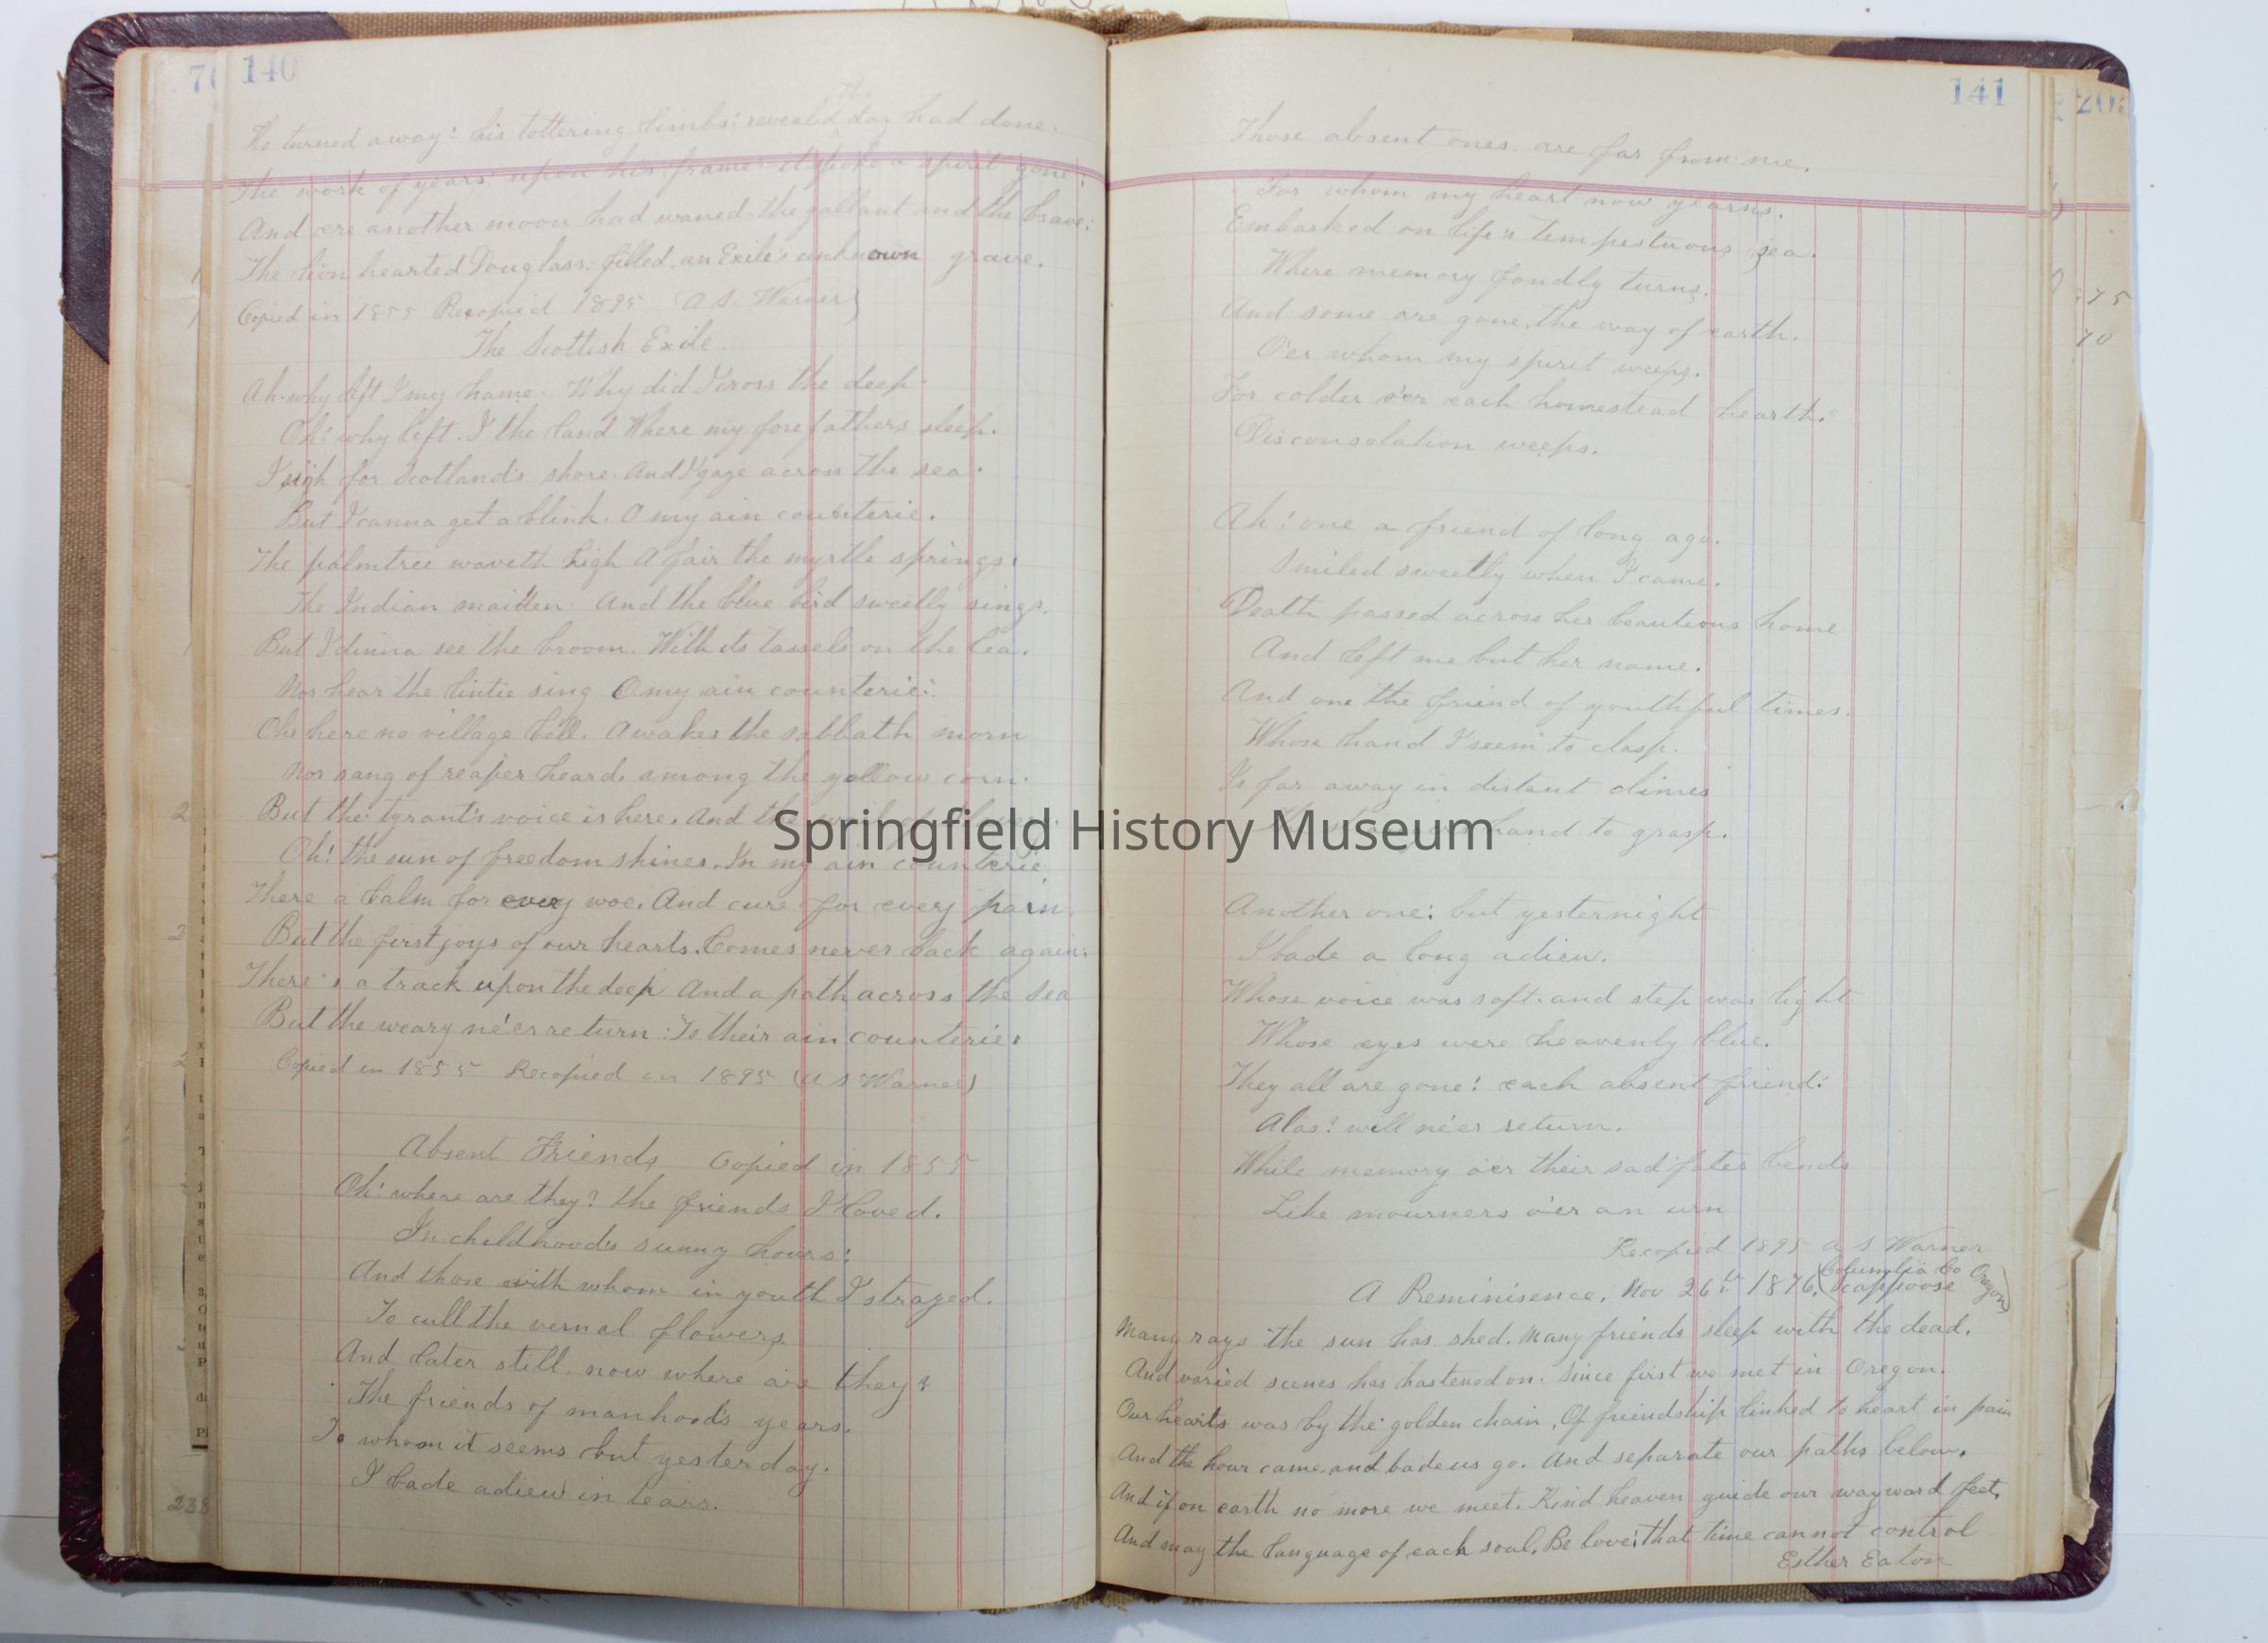 140
the
He turned away: his tottering limbs: reveald day had done.
The work of years upon his frame: it spoke a spirit gone:
And ere another moon had waned. the gallant and the brave:
The lion hearted Douglass. filled. an Exile's unknown grave.
Copied in 1855 Recopied 1895 (A S. Warner)
The Scottish Exile.
Ah. why left I my hame. Why did I cross the deep.
Oh! why left. I the land Where my forefathers sleep.
I sigh for Scotland's shore. And I gaze across the sea.
But I canna get a blink. O my ain counterie.
The palmtree waveth high A fair the myrtle springs.
The Indian maiden. And the blue bird sweetly sings.
But I dinna see the broom. With its tassels on the lea.
Nor hear the lintie sing O my ain counterie:
Oh here no village bell. Awakes the sabbath morn
Nor sang of reaper heard. among the yellow corn.
But the tyrant's voice is here. And the
Oh! the sun of freedom shines. In my ain counterie.
There a balm for every woe. And cure for every pain.
But the first joys of our hearts. Comes never back again.
There's a track upon the deep And a path across the sea
But the weary ne'er return: To their ain counterie:
Copied in 1855 Recopied in 1895 (A S Warner)
Absent Friends Copied in 1855
Oh! where are they? the friends I loved.
In childhood's sunny hours:
And those with whom in youth I strayed.
To cull the vernal flowers.
And later still. now where are they?
The friends of manhood's years.
To whom it seems but yesterday.
I bade adieu in tears.
141
Those absent ones are far from me.
For whom my heart now yearns.
Embarked on life's tempestuous sea.
Where memory fondly turns.
And some are gone. the way of earth.
O'er whom my spirit weeps.
For colder o'er each homestead hearth.
Disconsolation weeps.
Ah! one a friend of long ago.
Smiled sweetly when I came.
Death passed across her beauteous home
And left me but her name.
And one the friend of youthful times.
Whose hand I seem to clasp.
Is far away in distant climes
hand to grasp.
Another one: but yesternight
I bade a long adieu.
Whose voice was soft. and step was light
Whose eyes were heavenly blue.
They all are gone! each absent friend:
Alas! will ne'er return.
While memory o'er their sad fates bends
Like mourners o'er an urn
Recopied 1895 A S Warner
A Reminisence. Nov 26th 1876. (Scappoose Columbia Co Oregon)
Many rays the sun has shed. Many friends sleep with the dead.
And varied scenes has hastened on. Since first we met in Oregon.
Our hearts was by the golden chain. Of friendship linked to heart in pain
And the hour came. and bade us go. And separate our paths below.
And if on earth no more we meet. Kind heaven guide our wayward feet.
And may the language of each soul. Be love: that time cannot control
Esther Eaton
Springfield History Museum